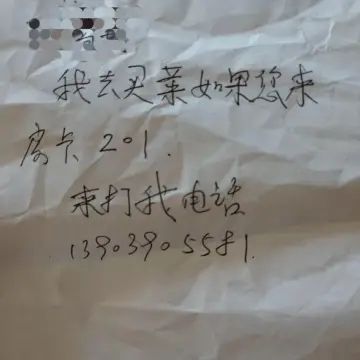 我去买菜如果您来
房卡 201.
来打我电话
13903905581.